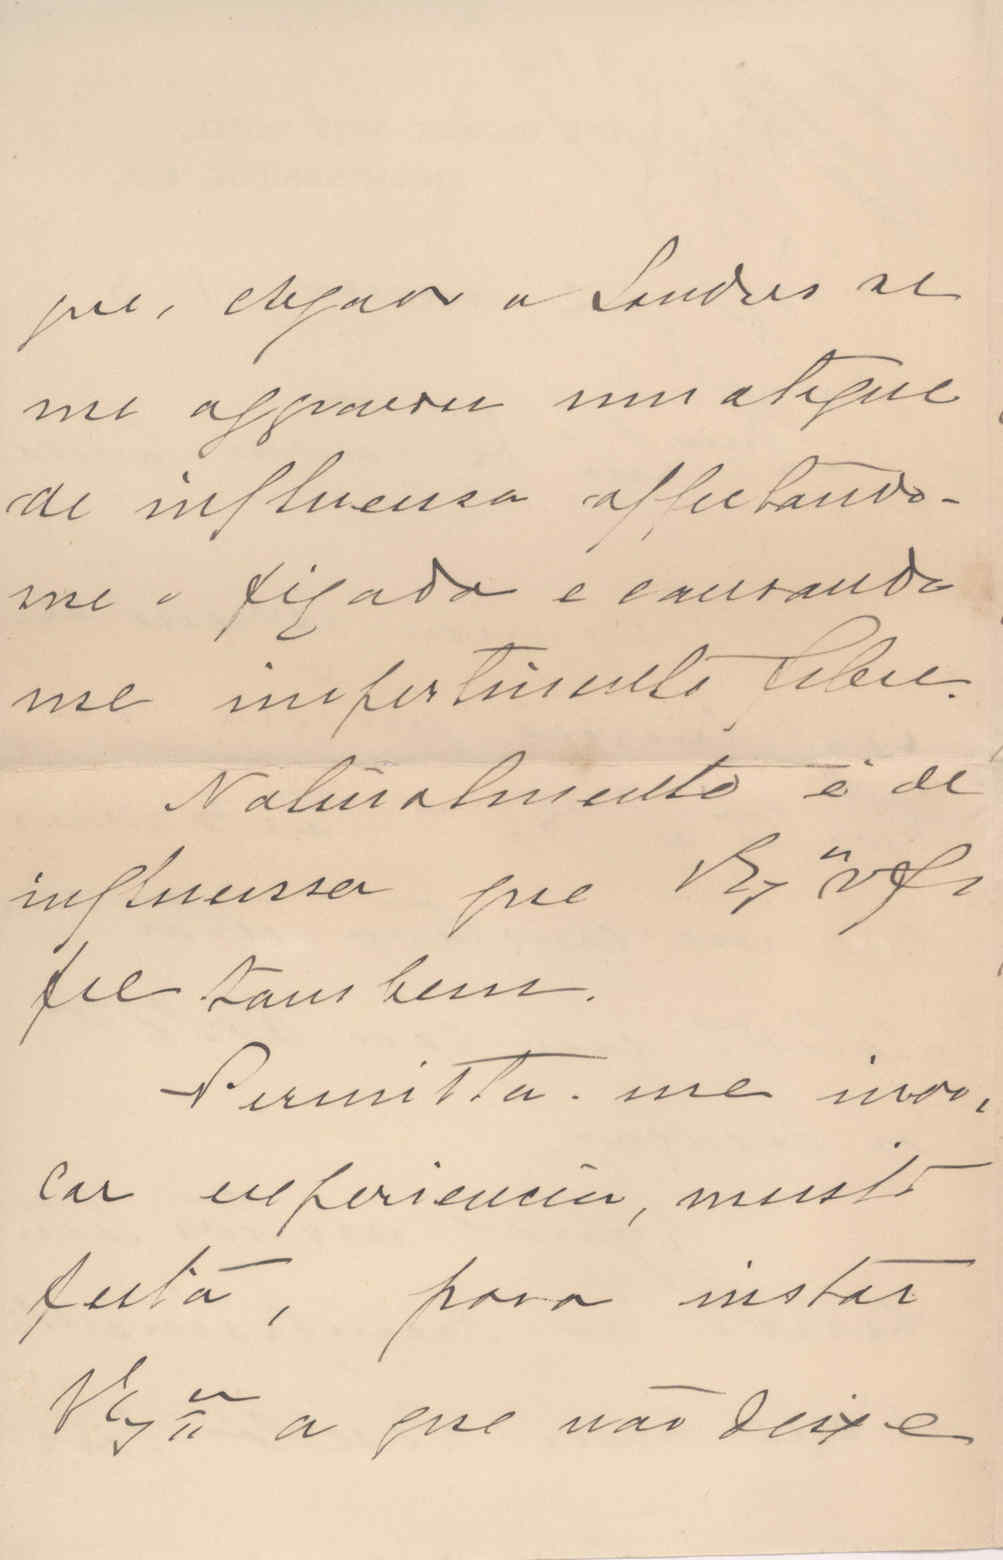 que, chegado a Londres se
me aggravou um ataque
de influensa affectando-
me o figado e causando
me impertinente febre.
Naturalmente é de
influensa que V. Exª
fre tambem.
Permitta-me invo-
car experiencia, muito
feita, para instar
V. Exª a que não deixe